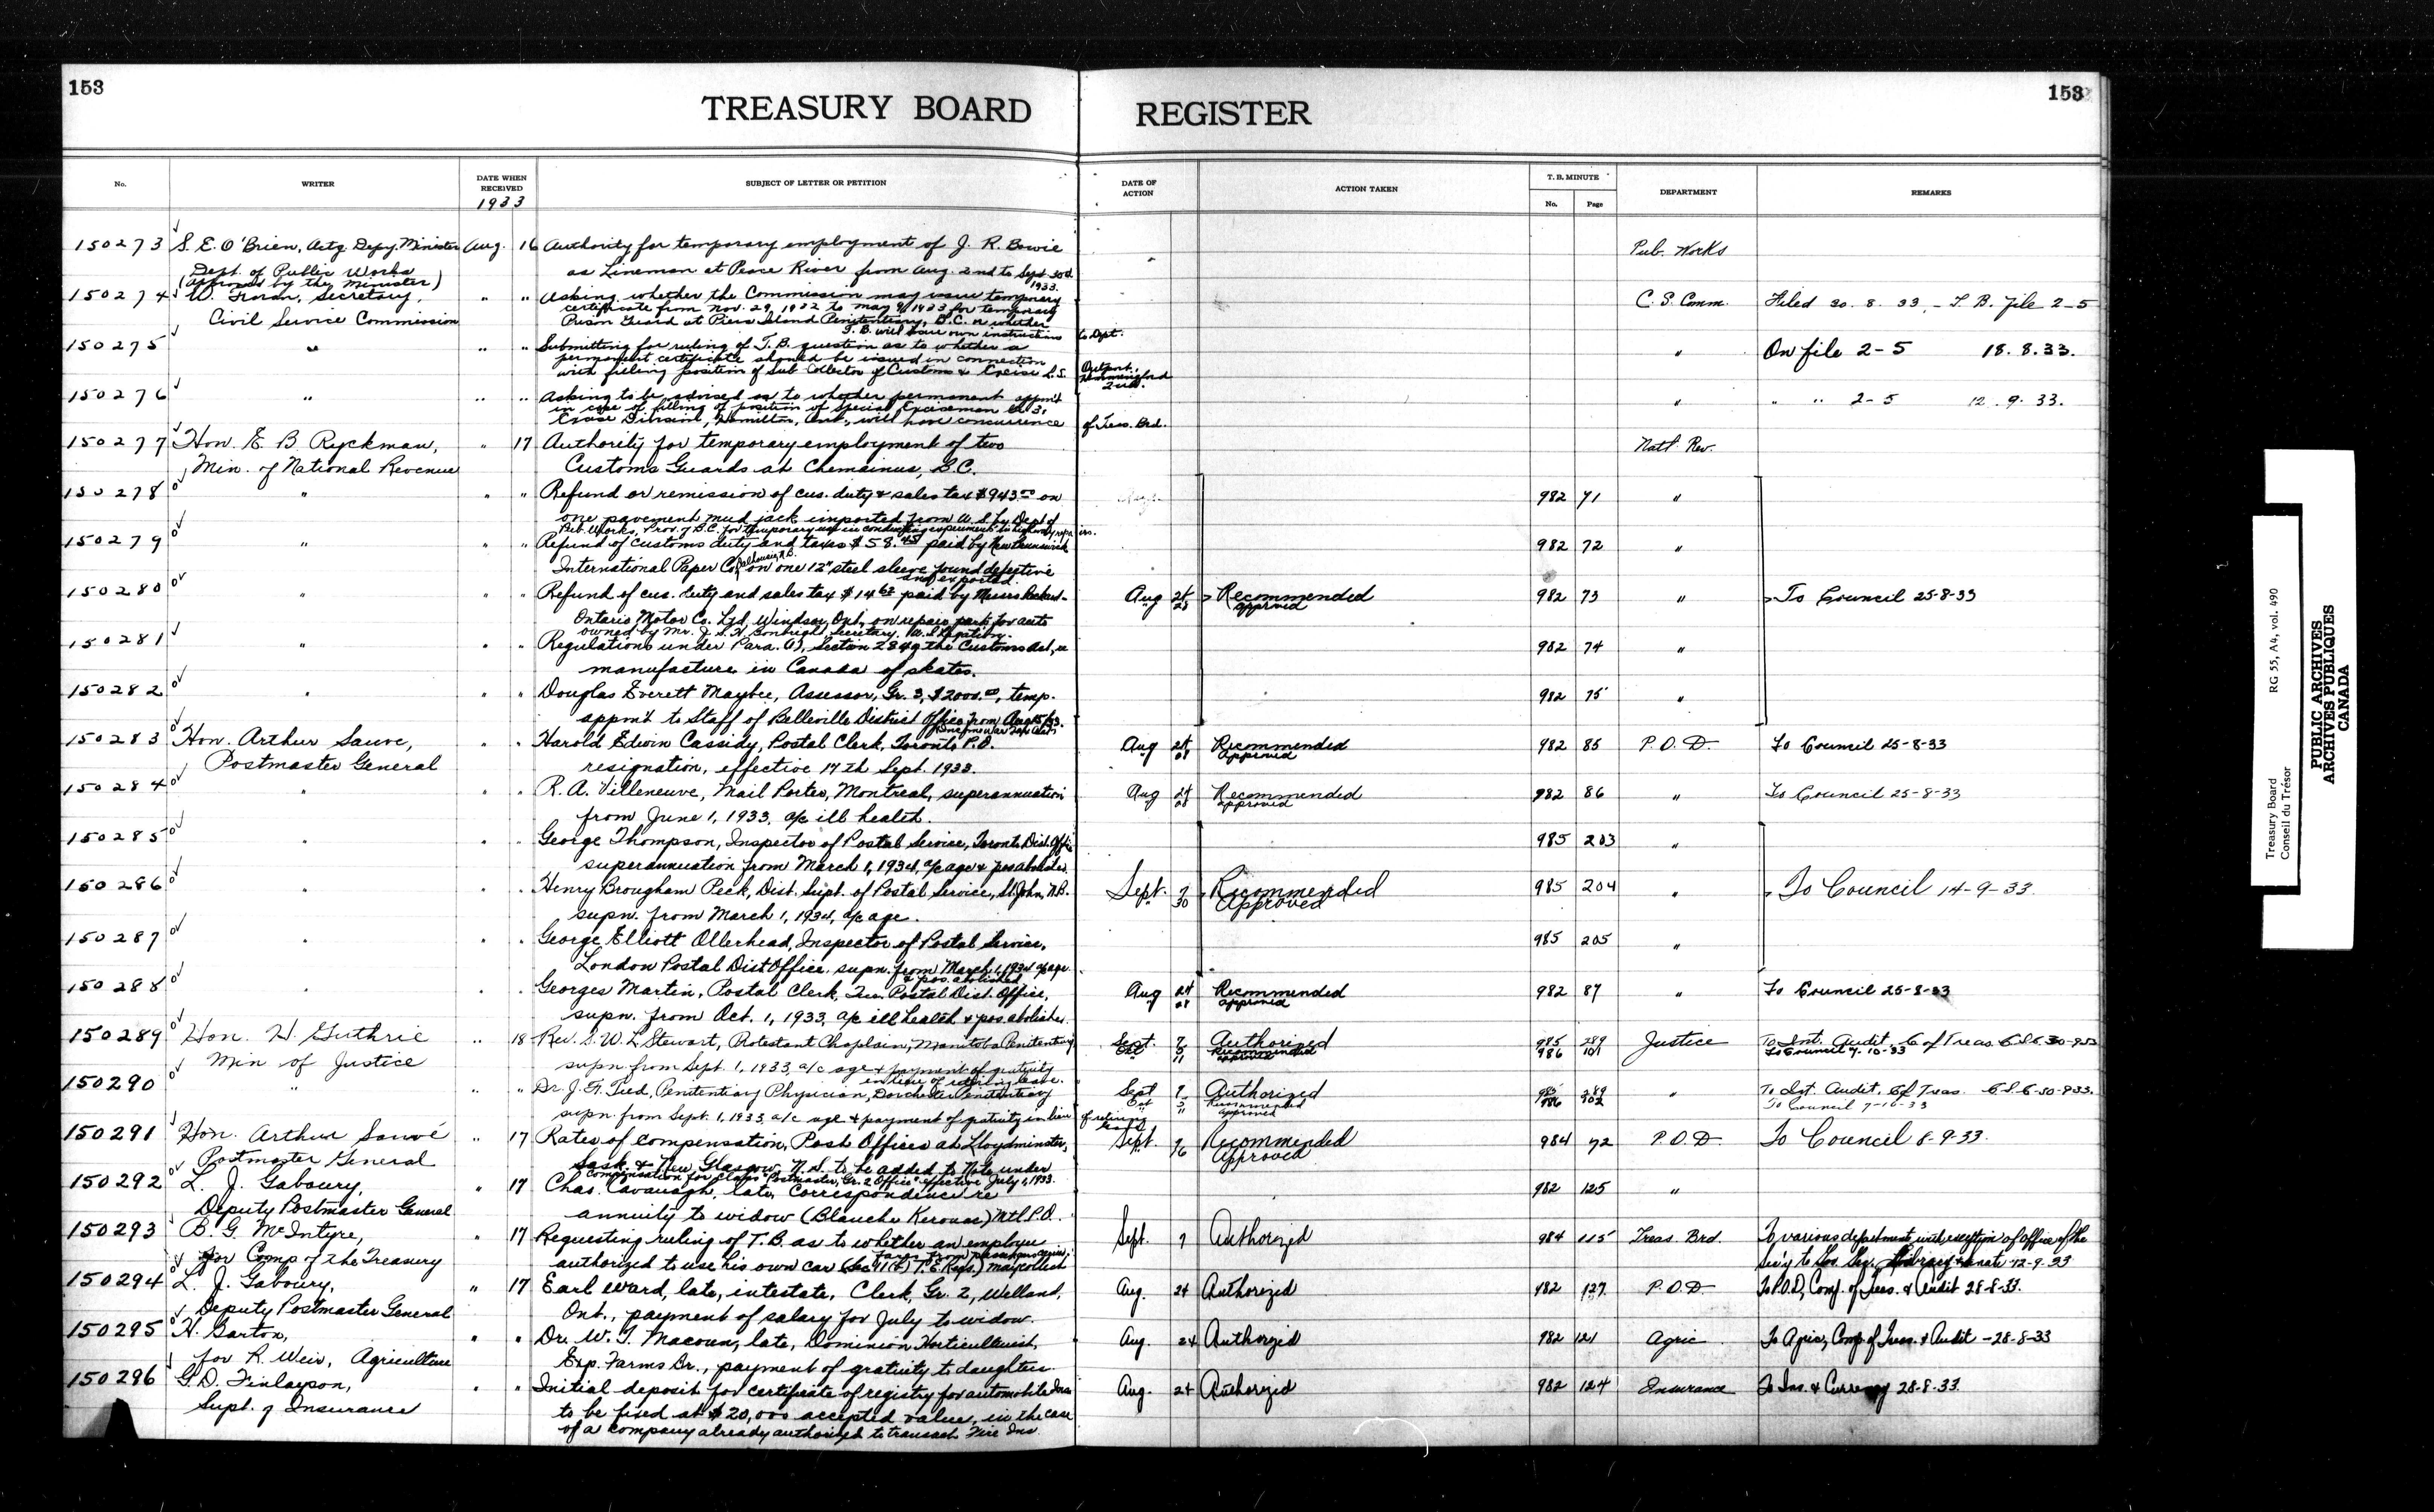 153
153
TREASURY BOARD REGISTER
No.
WRITER
DATE WHEN RECEIVED
1933
SUBJECT OF LETTER OR PETITION
DATE OF ACTION
ACTION TAKEN
T. B. MINUTE
No.
Page
DEPARTMENT
REMARKS
150273 S. E. O'Brien, Actg. Depy. Minister Aug. 16 Authority for temporary employment of J. R. Bowie Pub. Works
Dept. of Public Works as Lineman at Peace River from Aug. 2nd to Sept 30th
(Approved by the Minister) 1933.
150274 W. Foran, Secretary, " " Asking whether the Commission may issue temporary C. S. Comm. Filed 30. 8. 33, - T. B. file 2-5
Civil Service Commission certificate from Nov. 29, 1932 to May 9, 1933 for temporary
Prison Guard at Piers Island Penitentiary, B.C. or whether
T. B. will issue own instructions to Dept.
150275 " " " Submitting for ruling of T. B. question as to whether a " On file 2-5 18. 8. 33.
permanent certificate should be issued in connection
with filling position of Sub Collector of Customs & Excise Outport, Hemmingford Que.
150276 " " " Asking to be advised as to whether permanent appm't " " " 2-5 12. 9. 33.
in case of filling of position of Special Exciseman Gr 3,
Excise Division, Hamilton, Ont., will have concurrence of Treas. Brd.
150277 Hon. E. B. Ryckman, " 17 Authority for temporary employment of two Natl. Rev.
Min. of National Revenue Customs Guards at Chemainus, B.C.
150278 " " " Refund or remission of cus. duty & sales tax $943.00 on 982 71 "
one pavement mud jack imported from U. S. by Dept of
Pub. Works, Prov. of B.C. for temporary use in conducting experiments in highway repairs.
150279 " " " Refund of customs duty and taxes $58.45 paid by New Brunswick 982 72 "
International Paper Co., Dalhousie N.B. on one 12" steel sleeve found defective
and exported.
150280 " " " Refund of cus. duty and sales tax $14.62 paid by Messrs Packard- Aug 24 Recommended 982 73 " To Council 25-8-33
" 28 approved
Ontario Motor Co. Ltd, Windsor, Ont., on repair parts for auto
owned by Mr. J. S. Secretary, U. S. Legation.
150281 " " " Regulations under Para. (l), Section 284 of the Customs Act, re 982 74 "
manufacture in Canada of skates.
150282 " " " Douglas Everett Maybee, Assessor, Gr. 3, $2000.00, temp. 982 75 "
appm't to Staff of Belleville District Office from Aug 15/33.
150283 Hon. Arthur Sauve, " " Harold Edwin Cassidy, Postal Clerk, Toronto P.O. Aug 24 Recommended 982 85 P. O. D. To Council 25-8-33
" 28 approved
Postmaster General resignation, effective 17th Sept. 1933.
150284 " " " R. A. Villeneuve, Mail Porter, Montreal, superannuation Aug 24 Recommended 982 86 " To Council 25-8-33
" 28 approved
from June 1, 1933, a/c ill health.
150285 " " " George Thompson, Inspector of Postal Service, Toronto Dist. Office 985 203 "
superannuation from March 1, 1934, a/c age & pos. abolished.
150286 " " " Henry Brougham Peck, Dist. Supt. of Postal Service, St. John, N.B. Sept. 7 Recommended 985 204 " To Council 14-9-33.
" 30 Approved
supn. from March 1, 1934, a/c age.
150287 " " " George Elliott Ollerhead, Inspector of Postal Service, 985 205 "
London Postal Dist Office, supn. from March 1, 1934 a/c age
& pos. abolished
150288 " " " Georges Martin, Postal Clerk, Postal Dist. Office, Aug 24 Recommended 982 87 " To Council 25-8-33
" 28 approved
supn. from Oct. 1, 1933, a/c ill health & pos. abolished.
150289 Hon. H Guthrie " 18 Rev. S. W. L. Stewart, Protestant Chaplain, Manitoba Penitentiary Sept. 7 Authorized 985 289 Justice To Int. Audit, C of Treas.
Oct 5 Recommended 986 101 To Council 7-10-33
" 11 approved
Min of Justice supn. from Sept. 1, 1933, a/c age & payment of gratuity
in lieu of retiring leave.
150290 " " " Dr. J. G. Penitentiary Physician, Dorchester Penitentiary Sept 7 Authorized 985 289 " To Int. Audit, C of Treas.
Oct 5 Recommended 986 102 To Council 7-10-33
" 11 approved
supn. from Sept. 1, 1933, a/c age & payment of gratuity in lieu of retiring leave
150291 Hon. Arthur Sauvé " 17 Rates of compensation, Post Offices at Lloydminster, Sept. 7 Recommended 984 72 P. O. D. To Council 8-9-33.
" 16 Approved
Postmaster General Sask. & New Glasgow, N. S. to be added to Note under
compensation for class "Postmaster, Gr. 2 Office" effective July 1, 1933.
150292 L. J. Gaboury, " 17 Chas. Cavanagh, late, Correspondence re 982 125 "
Deputy Postmaster General annuity to widow (Blanche Kerouac) Mtl P.O.
150293 B. G. McIntyre, " 17 Requesting ruling of T. B. as to whether an employee Sept. 7 Authorized 984 115 Treas. Brd. To various departments with exception of Office of the
for Comp of the Treasury authorized to use his own car (Sec 11(b) T. E. Regs.) may collect Sec'y to Gov. Gen., Library & Senate 12-9-33
fares from
150294 L. J. Gaboury, " 17 Earl Ward, late, intestate, Clerk, Gr. 2, Welland, Aug. 24 Authorized 982 127 P. O. D. To P.O.D., Comp. of Treas. & Audit 28-8-33.
Deputy Postmaster General Ont., payment of salary for July to widow.
150295 H. Barton, " " Dr. W. T. Macoun, late, Dominion Horticulturist, Aug. 24 Authorized 982 121 Agric To Agric, Comp. of Treas. & Audit - 28-8-33
for R. Weir, Agriculture Exp. Farms Br., payment of gratuity to daughter.
150296 G. D. Finlayson, " " Initial deposit for certificate of registry for automobile Ins. Aug. 24 Authorized 982 124 Insurance To Ins. & Currency 28-8-33.
Supt. of Insurance to be fixed at $20,000 accepted value, in the case
of a company already authorized to transact Fire Ins.
Treasury Board
Conseil du Trésor
RG 55, A4, vol. 490
PUBLIC ARCHIVES
ARCHIVES PUBLIQUES
CANADA